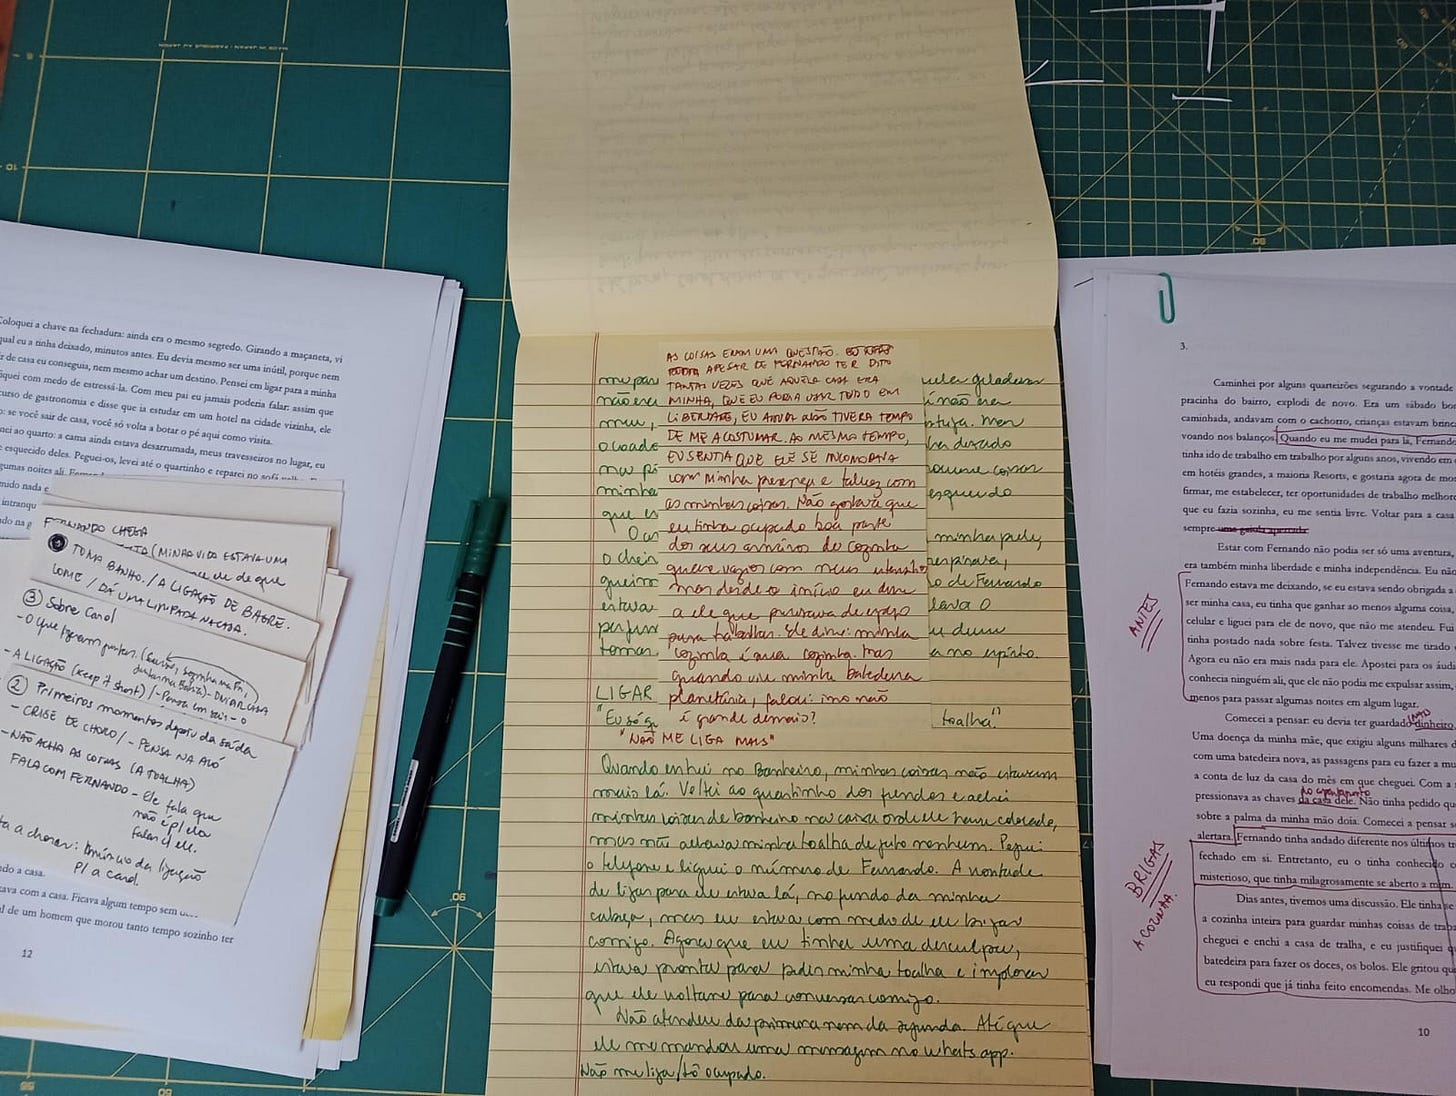 Coloquei a chave na fechadura: ainda era o mesmo segredo. Girando a maçaneta, vi
qual eu a tinha deixado, minutos antes. Eu devia mesmo ser uma inútil, porque nem
ir de casa eu consegui, nem mesmo achar um destino. Pensei em ligar para a minha
iquei com medo de estressá-la. Com meu pai eu jamais poderia falar: assim que
curso de gastronomia e disse que ia estudar em um hotel na cidade vizinha, ele
o: se você sair de casa, você só volta a botar o pé aqui como visita.
nei ao quarto: a cama ainda estava desarrumada, meus travesseiros no lugar, eu
e esquecido deles. Peguei-os, levei até o quartinho e reparei no sofá
gumas noites ali.
FERNANDO CHEGA
(MINHA VIDA ESTAVA UMA
de de que
TOMA BANHO. / A LIGAÇÃO DE BAGRE.
COME / DÁ UMA LIMPADA NA CASA.
③ Sobre Carol
- O que fizeram juntas.
- A LIGAÇÃO (keep it short) / - Pensa em sair - o
② Primeiros momentos depois da saída
- CRISE DE CHORO / - PENSA NA AVÓ
- NÃO ACHA AS COISAS (A TOALHA)
FALA COM FERNANDO - Ele fala que
não é p/ ela
falar c/ ele.
ta a chorar: Anúncio da ligação
p/ a Carol.
ndo a casa.
tava com a casa. Ficava algum tempo sem
al de um homem que morou tanto tempo sozinho ter
12
AS COISAS ERAM UMA QUESTÃO.
APESAR DE FERNANDO TER DITO
TANTAS VEZES QUE AQUELA CASA ERA
MINHA, QUE EU PODIA USAR TUDO EM
LIBERDADE, EU AINDA NÃO TIVERA TEMPO
DE ME ACOSTUMAR. AO MESMO TEMPO,
EU SENTIA QUE ELE SE INCOMODAVA
com minha presença e talvez com
as minhas coisas. Não gostava que
eu tinha ocupado boa parte
dos seus armários de cozinha
quase vazios com meus utensílios
mas desde o início eu disse
a ele que precisava de espaço
para trabalhar. Ele disse: minha
cozinha é sua cozinha. Mas
quando viu minha batedeira
planetária, falou: isso não
é grande demais?
geladeira
não era
deixado
coisas
esquerdo
minha pele,
respirava,
o de Fernando
no espírito.
LIGAR
toalha?"
"NÃO ME LIGA MAIS"
Quando entrei no banheiro, minhas coisas não estavam
mais lá. Voltei ao quartinho dos fundos e achei
minhas coisas de banheiro na caixa onde ele havia colocado,
mas não achava minha toalha de jeito nenhum. Peguei
o telefone e liguei o número de Fernando. A vontade
de ligar para ele estava lá, no fundo da minha
cabeça, mas eu estava com medo de ele brigar
comigo. Agora que eu tinha uma desculpa,
estava pronta para pedir minha toalha e implorar
que ele voltasse para conversar comigo.
Não atendeu da primeira nem da segunda. Até que
ele me mandou uma mensagem no whats app.
Não me liga/tô ocupado.
3.
Caminhei por alguns quarteirões segurando a vontade
pracinha do bairro, explodi de novo. Era um sábado bo
caminhada, andavam com o cachorro, crianças estavam brinca
voando nos balanços. Quando eu me mudei para lá, Fernando
tinha ido de trabalho em trabalho por alguns anos, vivendo em
em hotéis grandes, a maioria Resorts, e gostaria agora de mo
firmar, me estabelecer, ter oportunidades de trabalho melhore
que eu fazia sozinha, eu me sentia livre. Voltar para a casa
sempre
Estar com Fernando não podia ser só uma aventura,
era também minha liberdade e minha independência. Eu não
Fernando estava me deixando, se eu estava sendo obrigada a
ser minha casa, eu tinha que ganhar ao menos alguma coisa,
celular e liguei para ele de novo, que não me atendeu. Fui
tinha postado nada sobre festa. Talvez tivesse me tirado
Agora eu não era mais nada para ele. Apostei para os áud
conhecia ninguém ali, que ele não podia me expulsar assim,
menos para passar algumas noites em algum lugar.
ANTES
Comecei a pensar: eu devia ter guardado dinheiro.
Uma doença da minha mãe, que exigiu alguns milhares d
com uma batedeira nova, as passagens para eu fazer a mu
a conta de luz da casa do mês em que cheguei. Com a
do apartamento
pressionava as chaves da casa dele. Não tinha pedido qu
sobre a palma da minha mão doía. Comecei a pensar s
alertara. Fernando tinha andado diferente nos últimos tr
fechado em si. Entretanto, eu o tinha conhecido
misterioso, que tinha milagrosamente se aberto a mim
BRIGAS
A COZINHA.
Dias antes, tivemos uma discussão. Ele tinha
a cozinha inteira para guardar minhas coisas de traba
cheguei e enchi a casa de tralha, e eu justifiquei q
batedeira para fazer os doces, os bolos. Ele gritou q
eu respondi que já tinha feito encomendas. Me olho
10